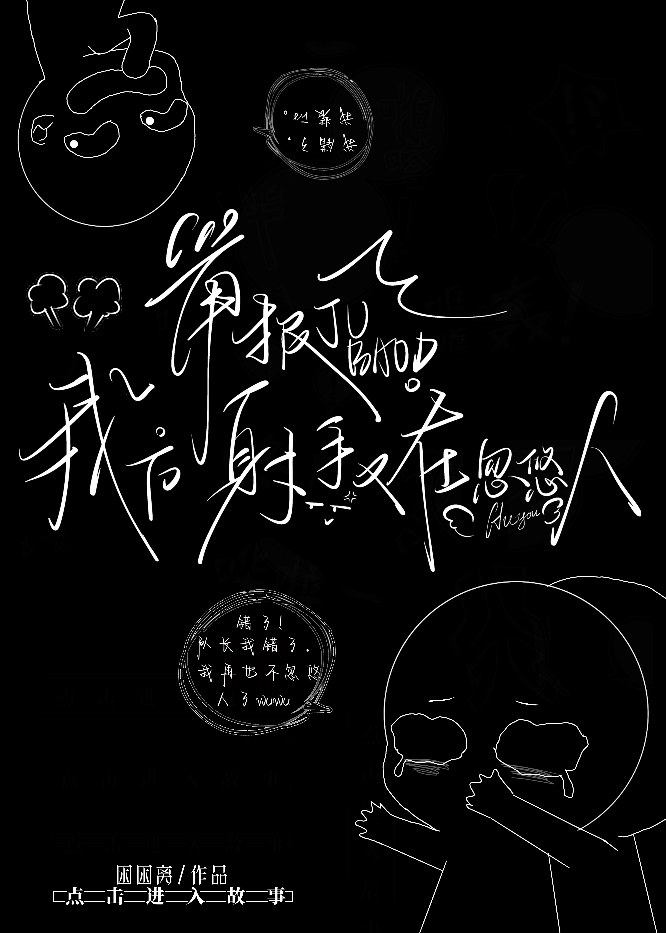 举报
JU
BAOD
我方射手又在忽悠人
Huyou
错了!
队长我错了.
我再也不忽悠
人了wuwu
困困离/作品
点击进入故事